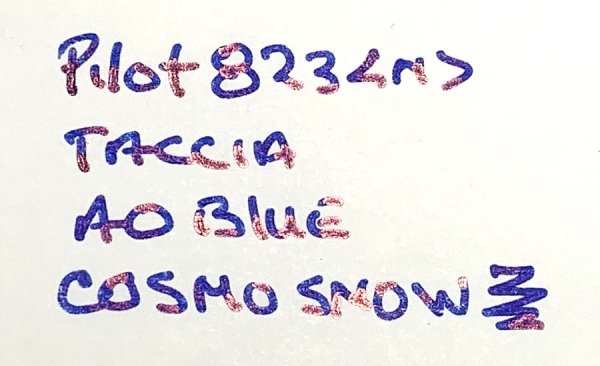 Pilot 823 <M>
TACCIA
AO Blue
COSMO SNOW